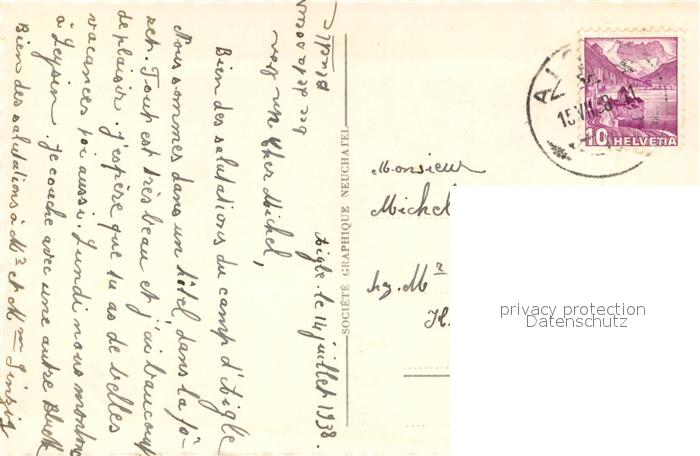 Aigle. le 14 juillet 1938.
Mon Cher Michel,
Bien des salutations du camp d'Aigle
Nous sommes dans un hôtel, dans la fo-
ret. Tout est très beau et j'ai beaucoup
de plaisir. J'espère que tu as de belles
vacances toi aussi. Lundi nous montons
à Leysin. Je couche avec une autre
Bien des salutations à Mr et Mme
SOCIÉTÉ GRAPHIQUE NEUCHATEL
Monsieur
Michel
hg. Mr
15 VII 38
10 HELVETIA
privacy protection
Datenschutz